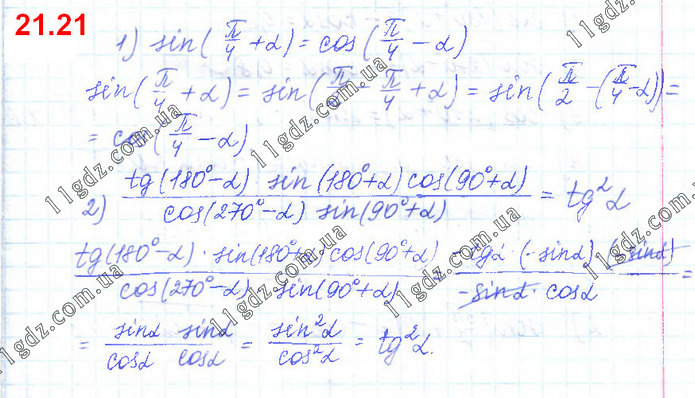 21.21
1) sin(π/4 + α) = cos(π/4 − α)
sin(π/4 + α) = sin( − π/4 + α) = sin(π/2 − (π/4 − α)) =
= cos(π/4 − α)
2) tg(180° − α) sin(180° + α) cos(90° + α) / cos(270° − α) sin(90° + α) = tg²α
tg(180° − α) · sin(180° + ) cos(90° + α) / cos(270° − α) sin(90° + α) = −tgα · (−sinα) · (−sinα) / −sinα · cosα =
= sinα sinα / cosα cosα = sin²α / cos²α = tg²α.
11gdz.com.ua
11gdz.com.ua
11gdz.com.ua
11gdz.com.ua
11gdz.com.ua
11gdz.com.ua